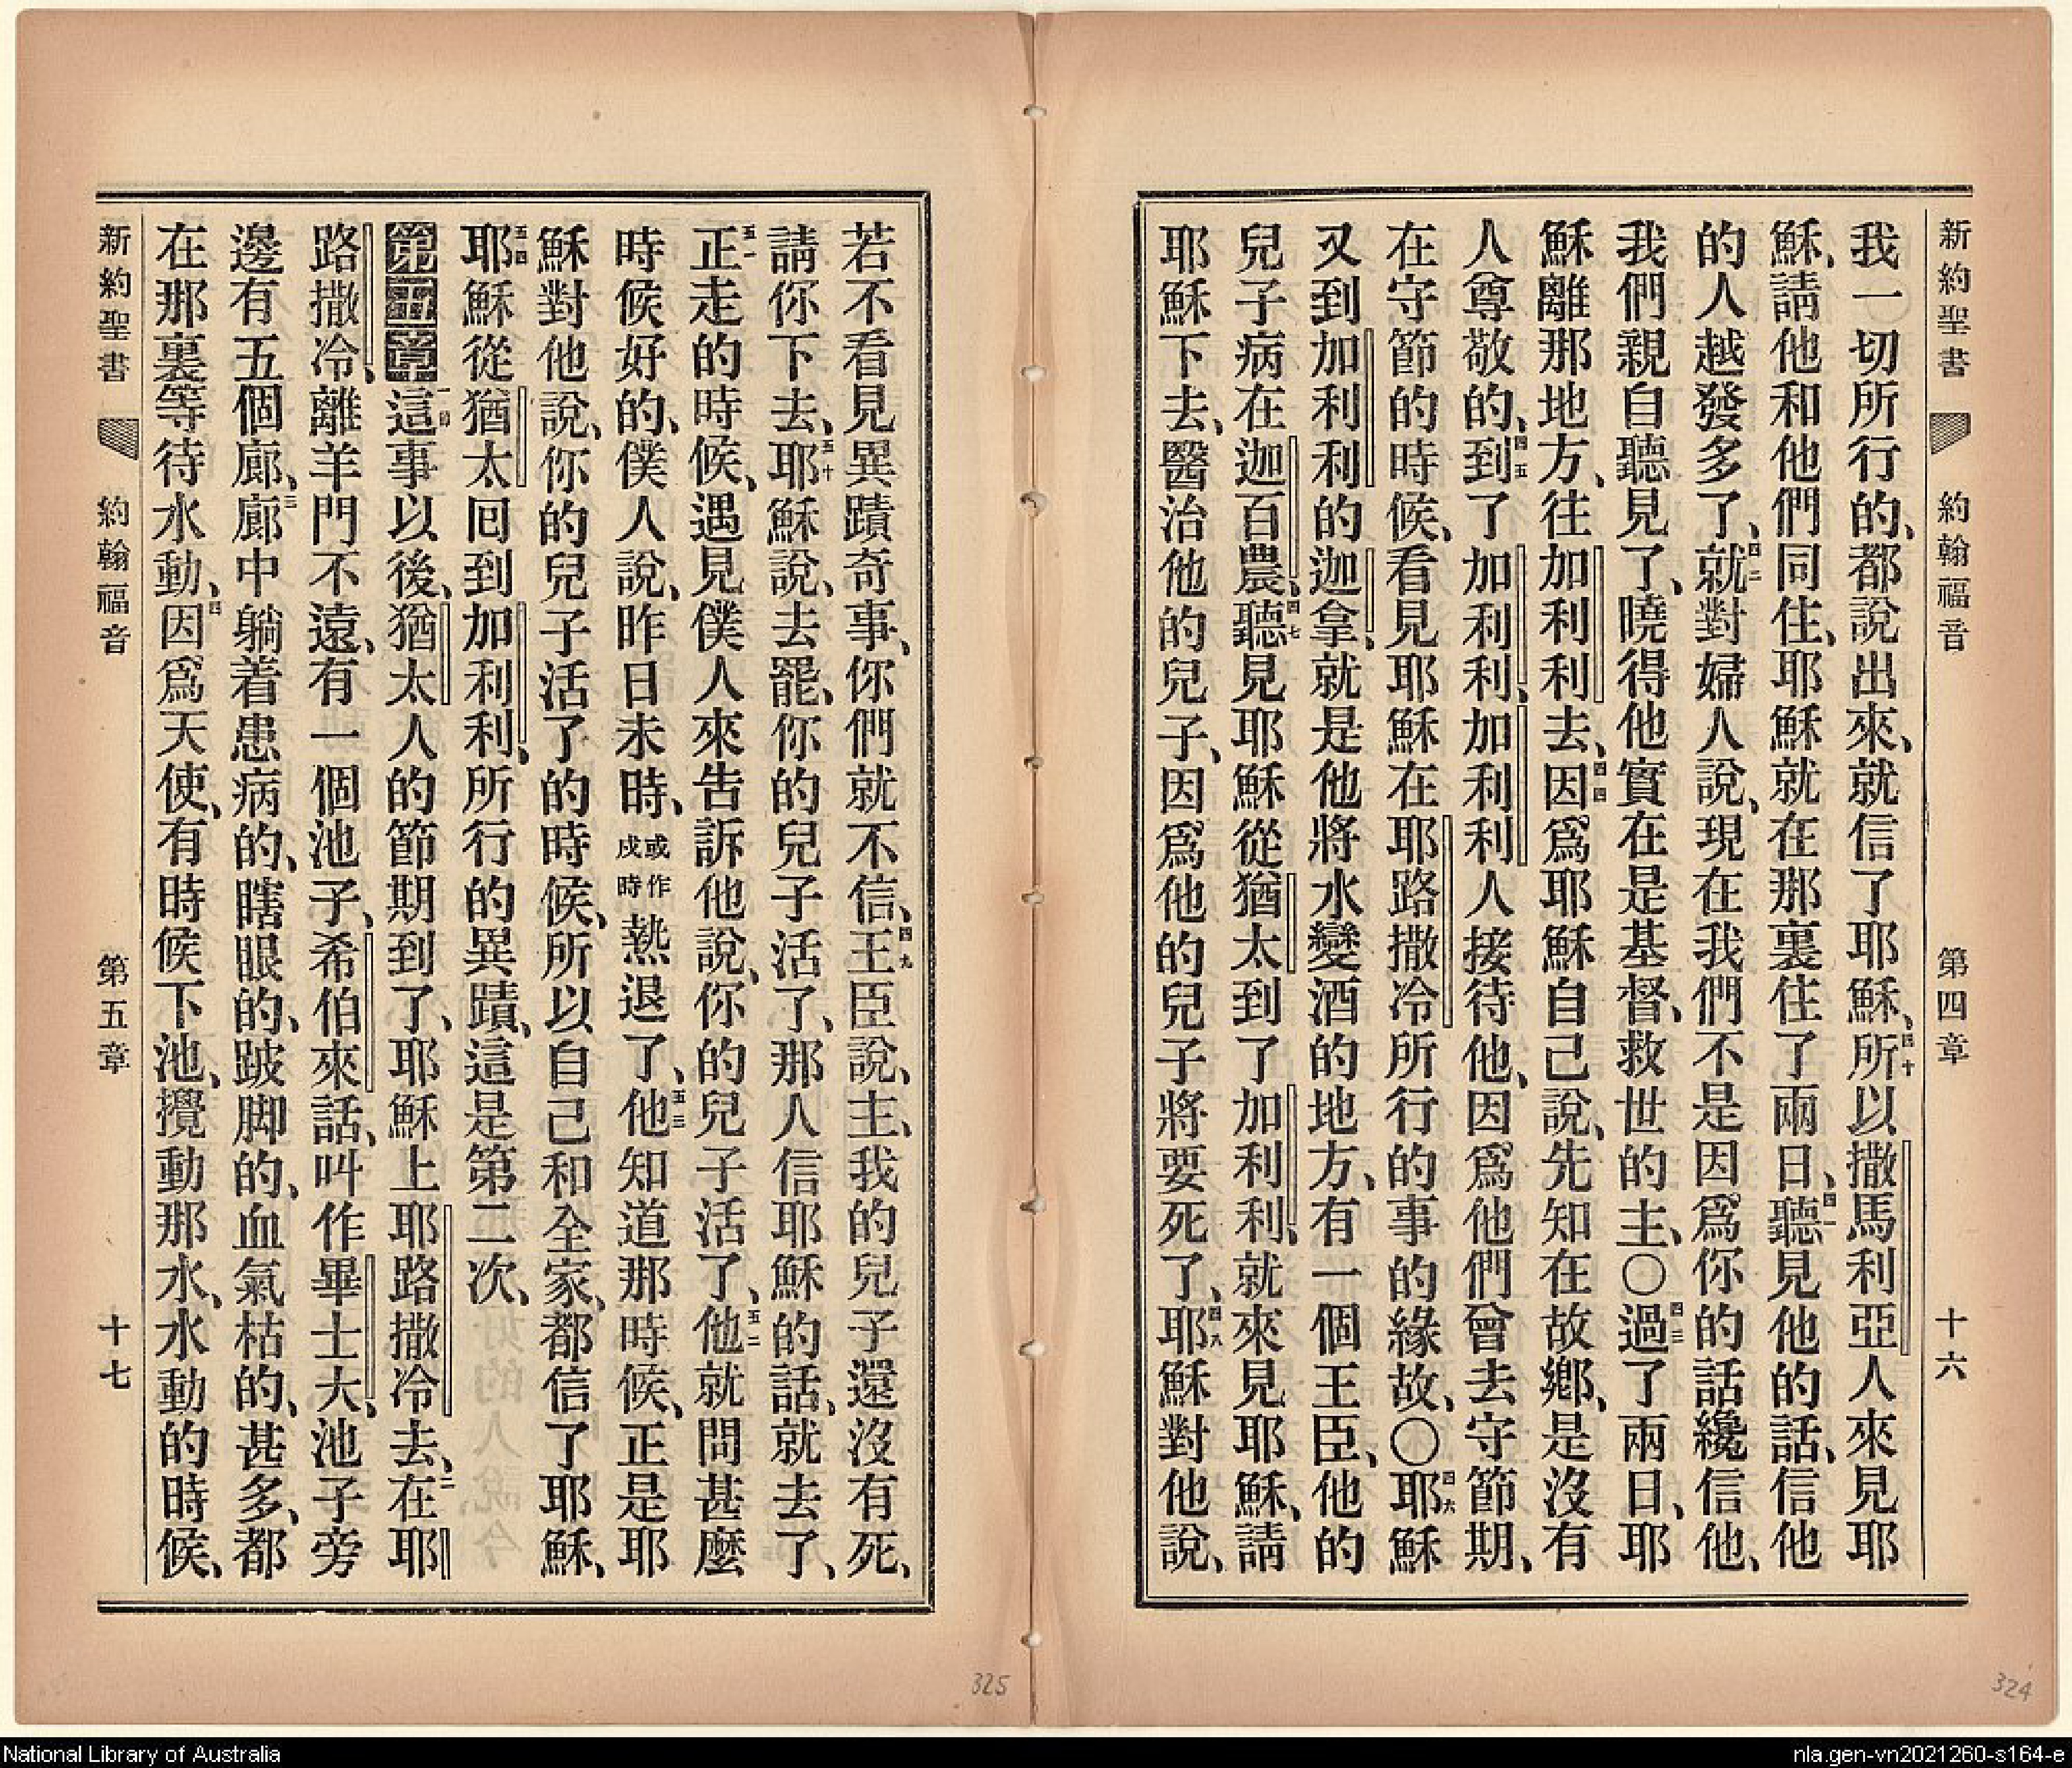 新約聖書 約翰福音 第四章 十六
我一切所行的、都說出來、就信了耶穌、四十所以撒馬利亞人來見耶
穌、請他和他們同住、耶穌就在那裏住了兩日、四一聽見他的話、信他
的人越發多了、四二就對婦人說、現在我們不是因爲你的話纔信他、
我們親自聽見了、曉得他實在是基督、救世的主、〇四三過了兩日、耶
穌離那地方、往加利利去、四四因爲耶穌自己說、先知在故鄉、是沒有
人尊敬的、四五到了加利利、加利利人接待他、因爲他們曾去守節期、
在守節的時候、看見耶穌在耶路撒冷所行的事的緣故、〇四六耶穌
又到加利利的迦拿、就是他將水變酒的地方、有一個王臣、他的
兒子病在迦百農、四七聽見耶穌從猶太到了加利利、就來見耶穌、請
耶穌下去、醫治他的兒子、因爲他的兒子將要死了、四八耶穌對他說、
324
若不看見異蹟奇事、你們就不信、四九王臣說、主、我的兒子還沒有死、
請你下去、五十耶穌說、去罷、你的兒子活了、那人信耶穌的話、就去了、
五一正走的時候、遇見僕人來告訴他說、你的兒子活了、五二他就問甚麼
時候好的、僕人說、昨日未時、或作戌時熱退了、五三他知道那時候、正是耶
穌對他說、你的兒子活了的時候、所以自己和全家、都信了耶穌、
五四耶穌從猶太囘到加利利、所行的異蹟、這是第二次、
第五章一節這事以後、猶太人的節期到了、耶穌上耶路撒冷去、二在耶
路撒冷、離羊門不遠、有一個池子、希伯來話、叫作畢士大、池子旁
邊有五個廊、三廊中躺着患病的、瞎眼的、跛脚的、血氣枯的、甚多、都
在那裏等待水動、四因爲天使、有時候下池、攪動那水、水動的時候、
新約聖書 約翰福音 第五章 十七
325
National Library of Australia
nla.gen-vn2021260-s164-e